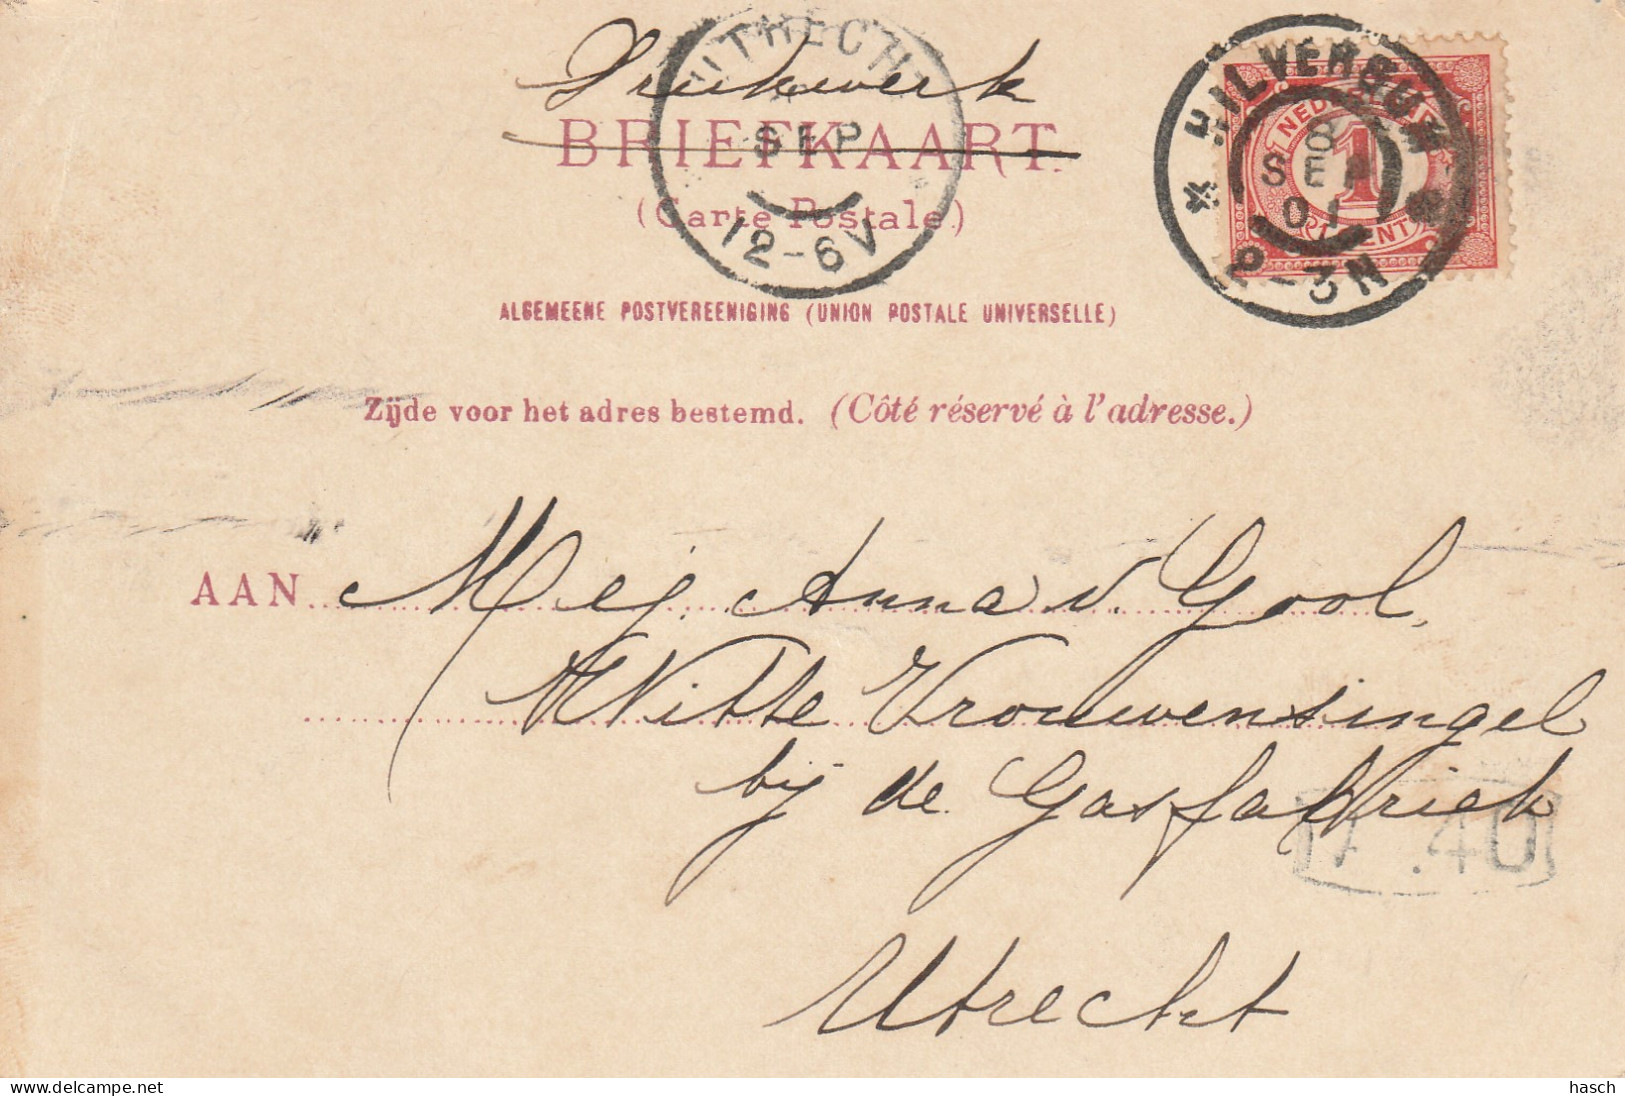 Drukwerk
BRIEFKAART.
(Carte Postale.)
UTRECHT
SEP
12-6V
HILVERSUM
8
SEP
01
2-3N
1
CENT
ALGEMEENE POSTVEREENIGING (UNION POSTALE UNIVERSELLE)
Zijde voor het adres bestemd. (Côté réservé à l'adresse.)
AAN Mej. Anna v. Gool,
Witte Vrouwensingel
bij de Gasfabriek
Utrecht
delcampe.net
hasch